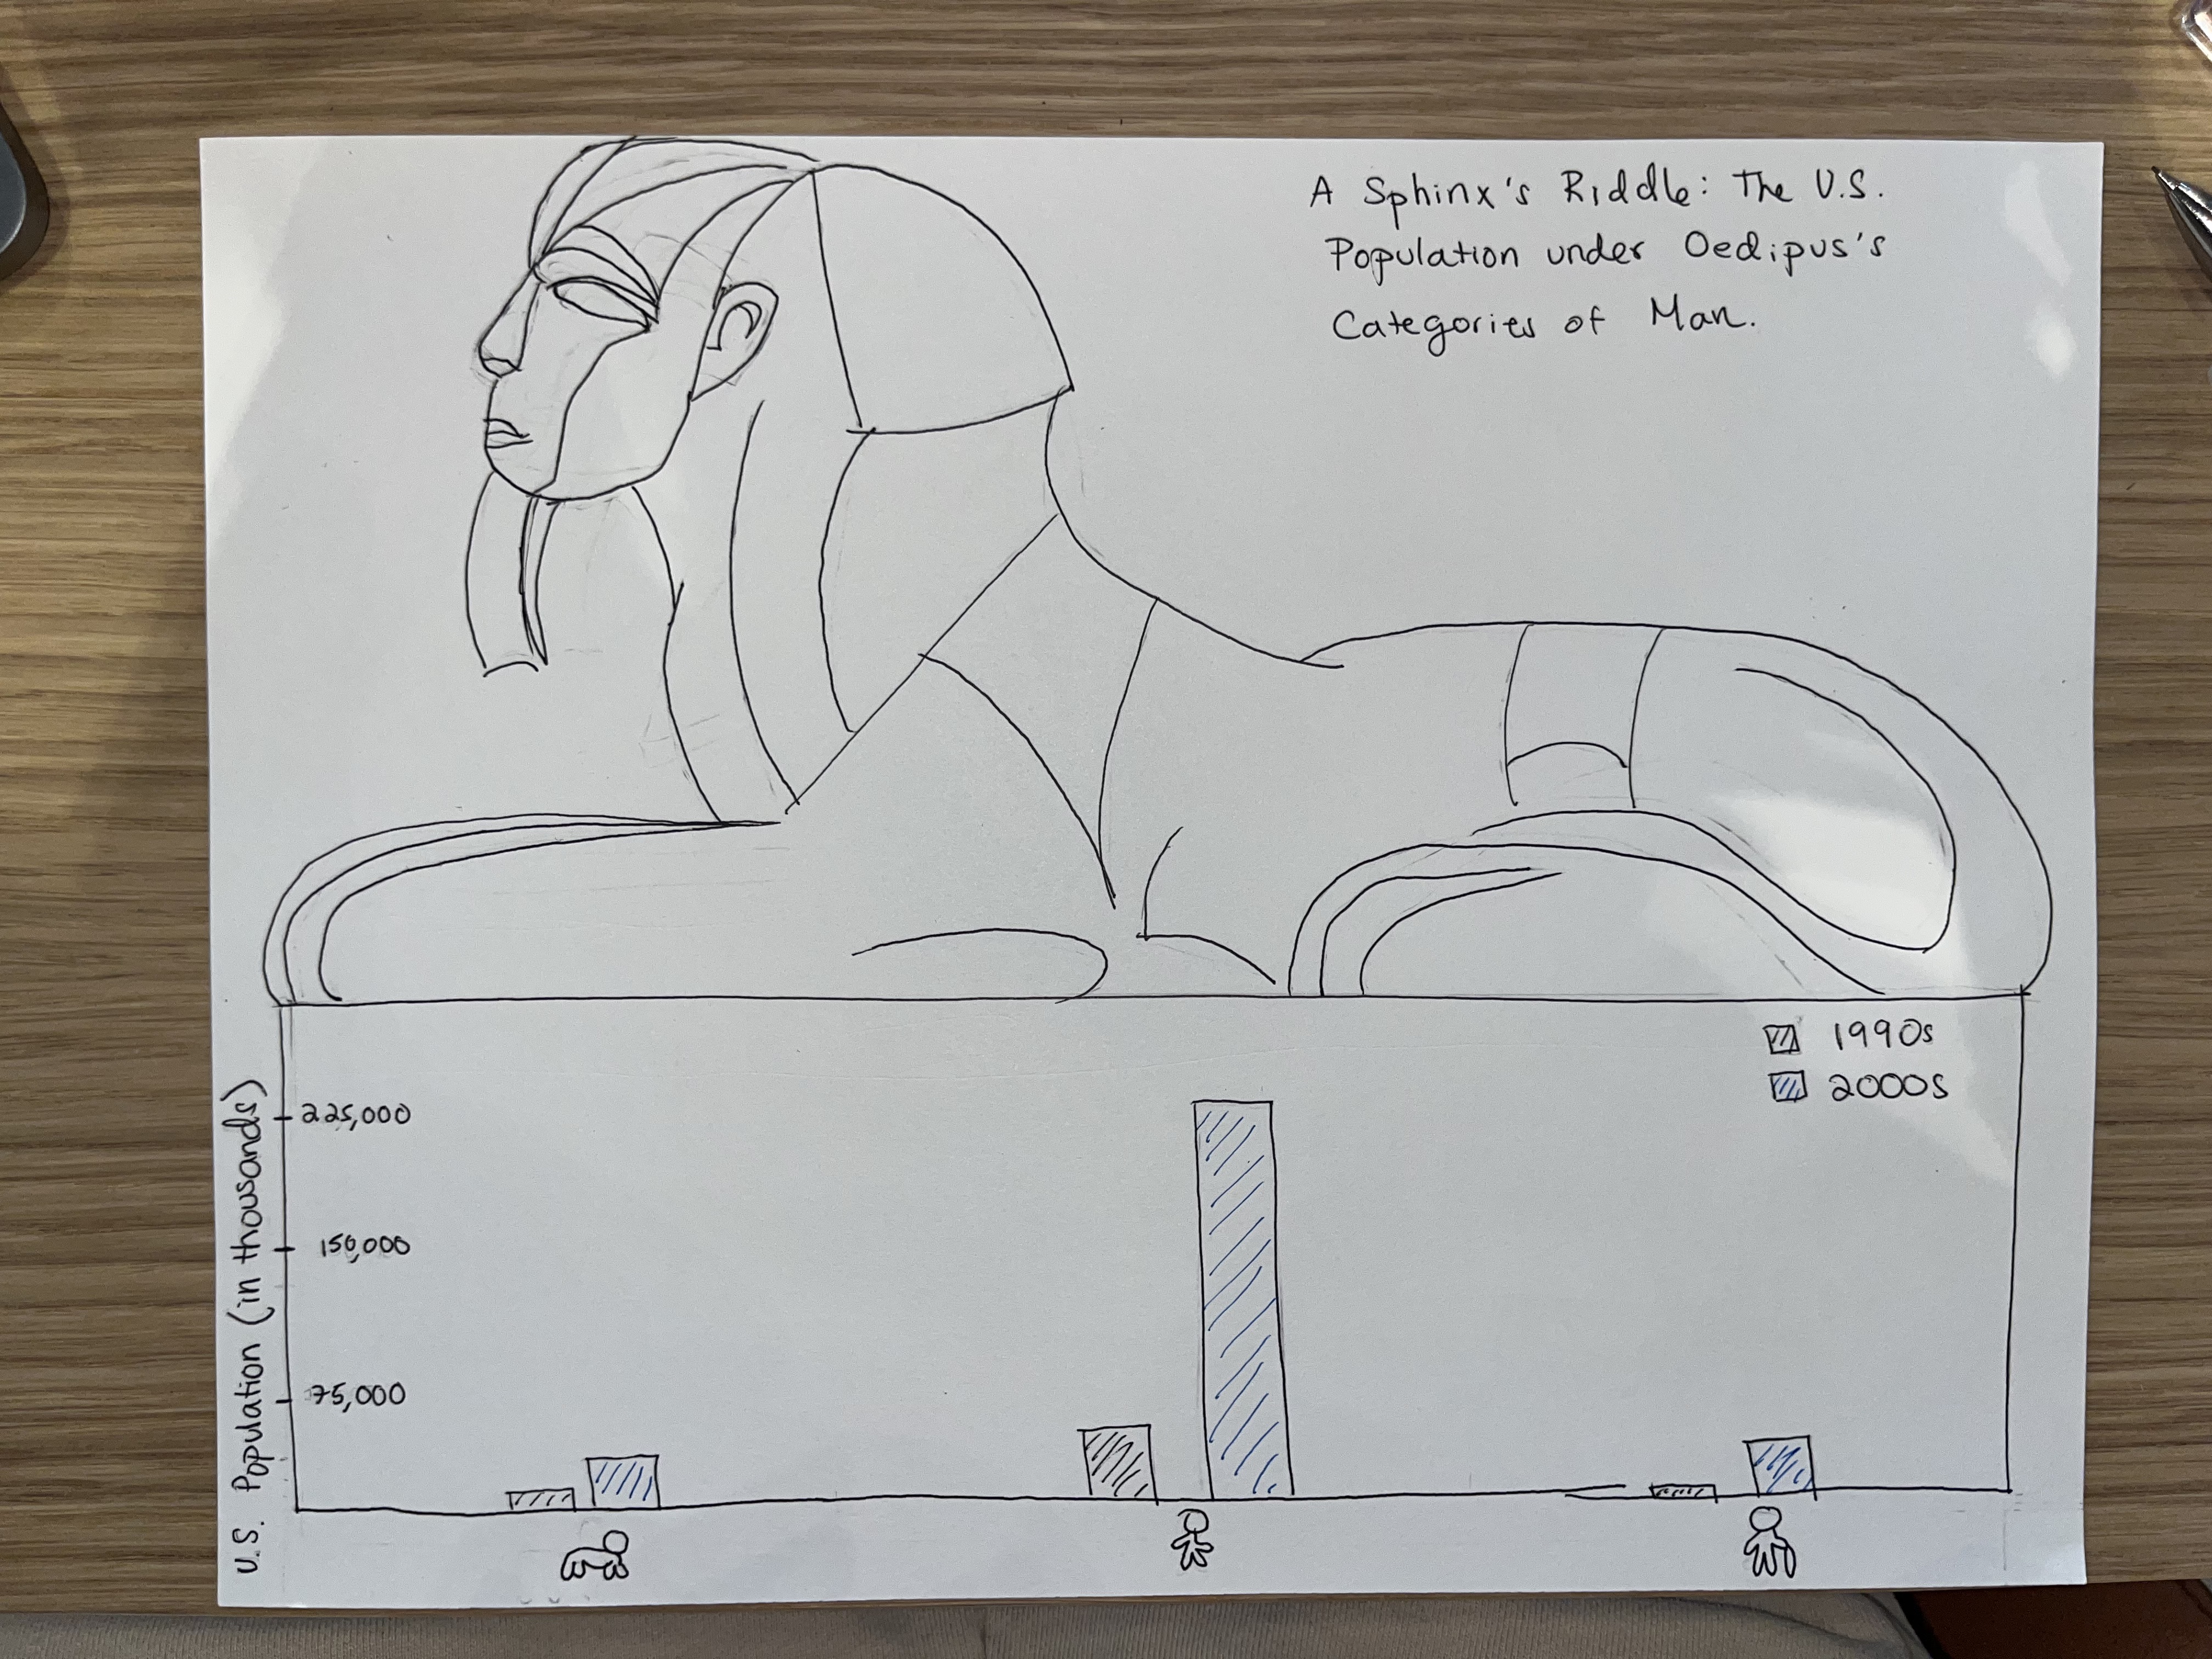 A Sphinx's Riddle: The U.S.
Population under Oedipus's
Categories of Man.
1990s
2000s
U.S. Population (in thousands)
225,000
150,000
75,000